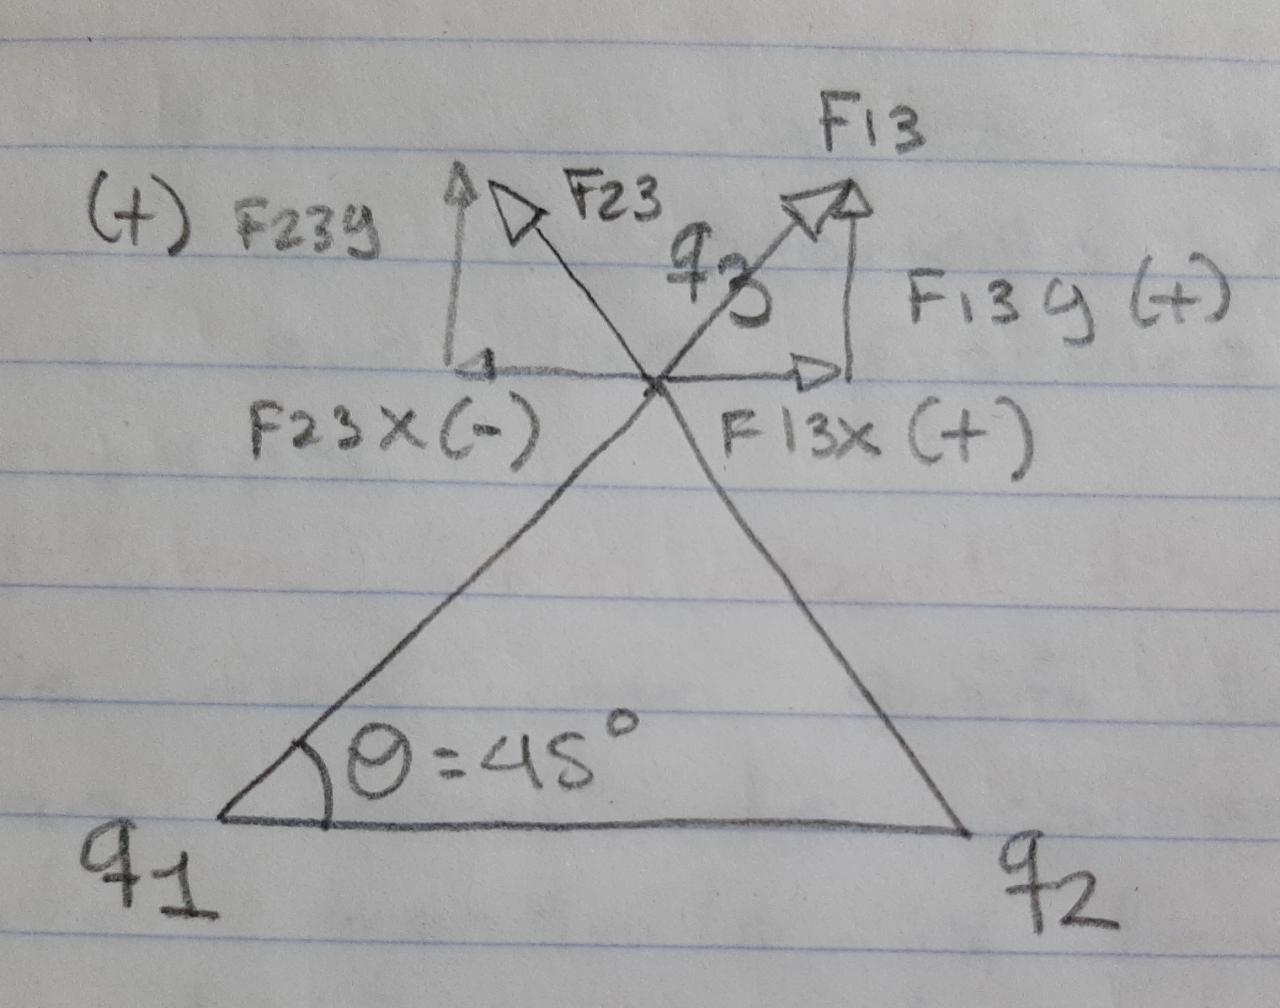 F13
(+) F23y
F23
q3
F13y (+)
F23x(-)
F13x (+)
θ=45°
q1
q2